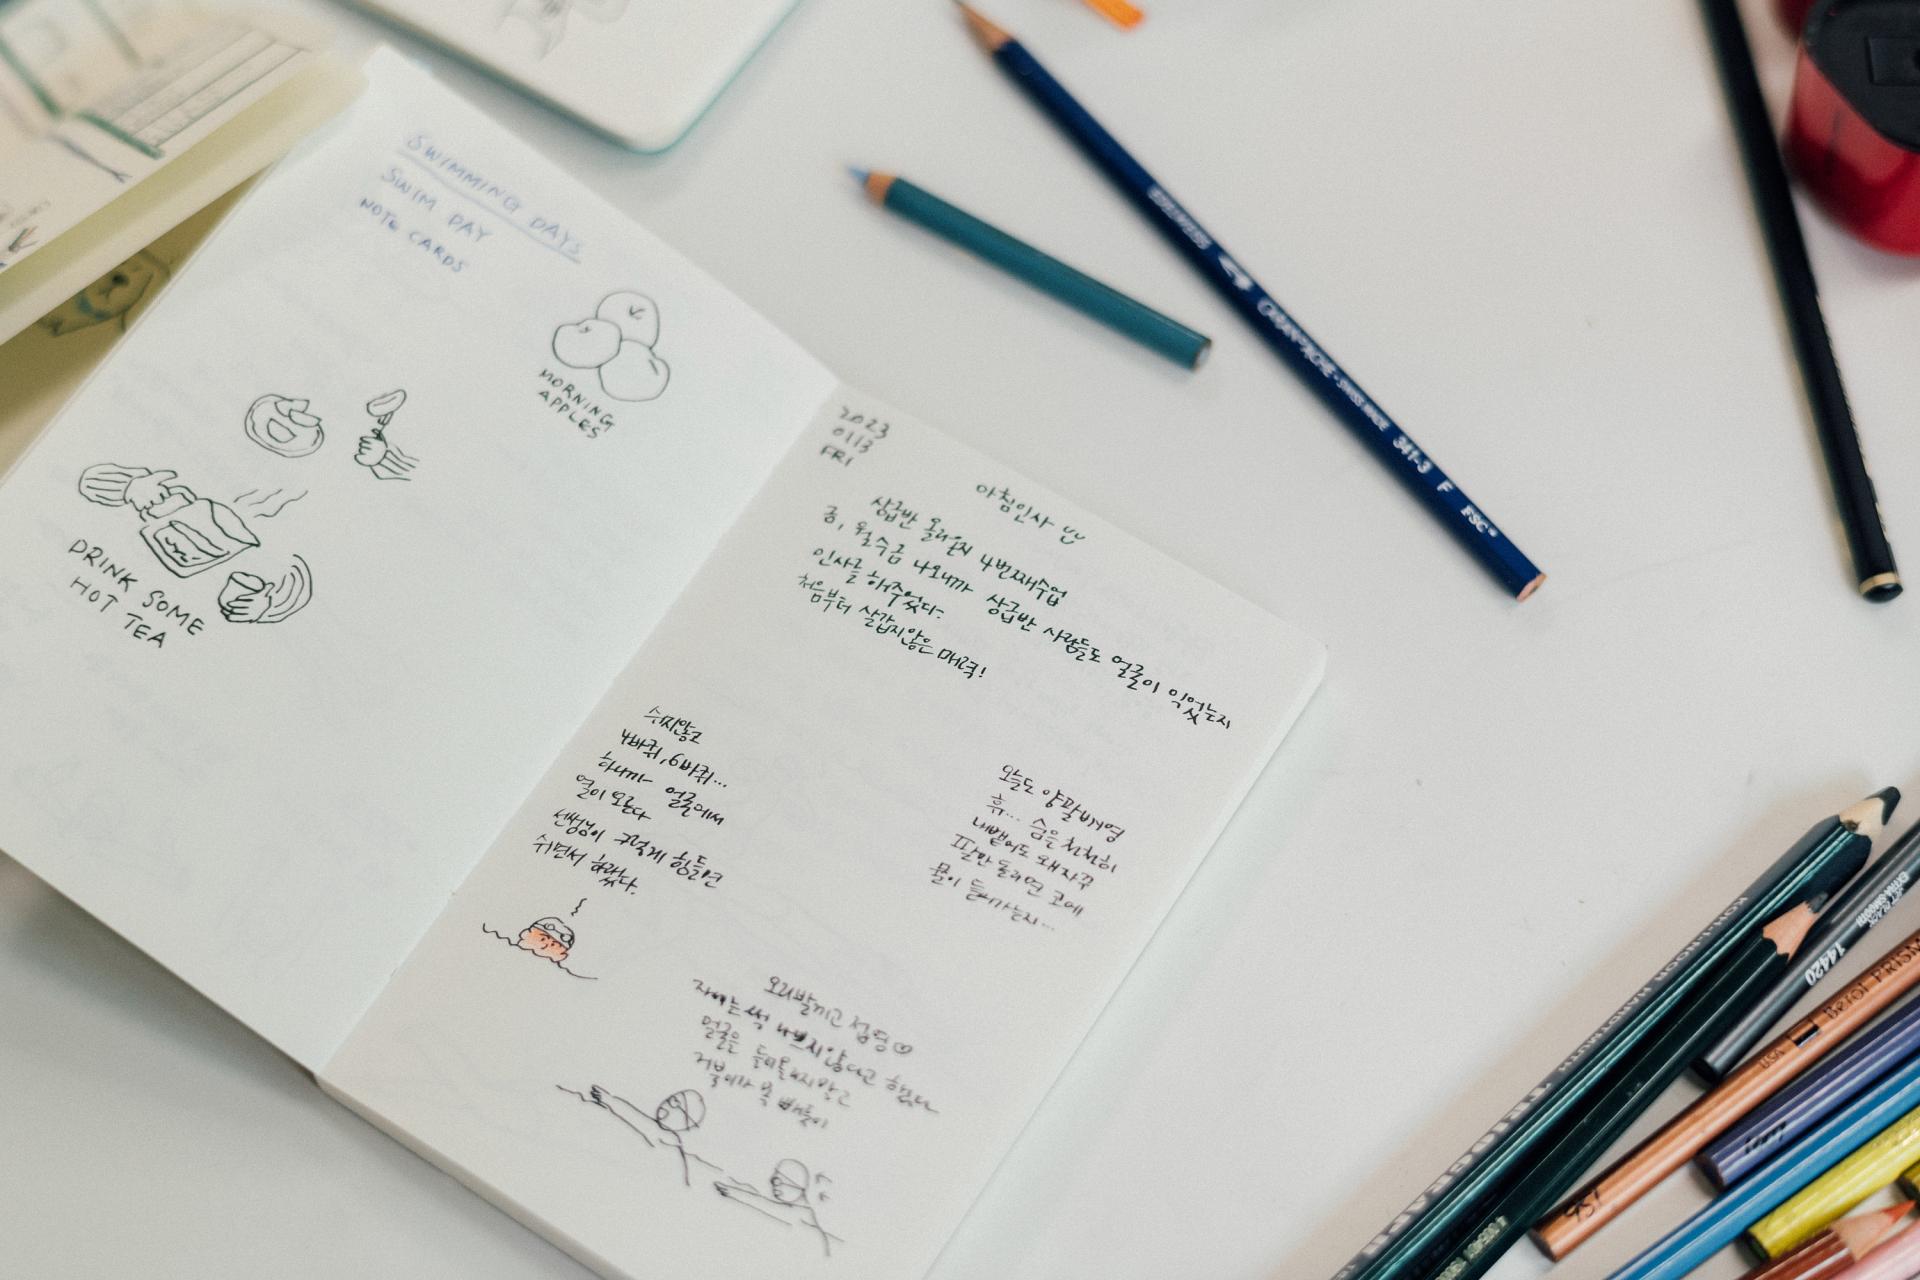 SWIMMING DAYS
SWIM DAY
NOTE CARDS
MORNING
APPLES
DRINK SOME
HOT TEA
2023
0113
FRI
아침인사
상급반 올라온지 4번째수업
흠, 월수금 나오니까 상급반 사람들도 얼굴이 익었는지
인사를 해주었다.
처음부터 살갑지않은 매력!
쉬지않고
4바퀴, 6바퀴...
하니까 얼굴에서
열이 오른다
선생님이 그렇게 힘들면
쉬면서 하랬다.
오늘도 양팔접영
휴... 숨은 천천히
내뱉어도 왜 자꾸
팔만 돌리면 코에
물이 들어가는지...
오리발끼고 접영♡
자세는 썩 나쁘지않다고 했다
얼굴은
CARAN D'ACHE · SWISS MADE 341-3 F FSC
14420
Berol PRISM
USA
951